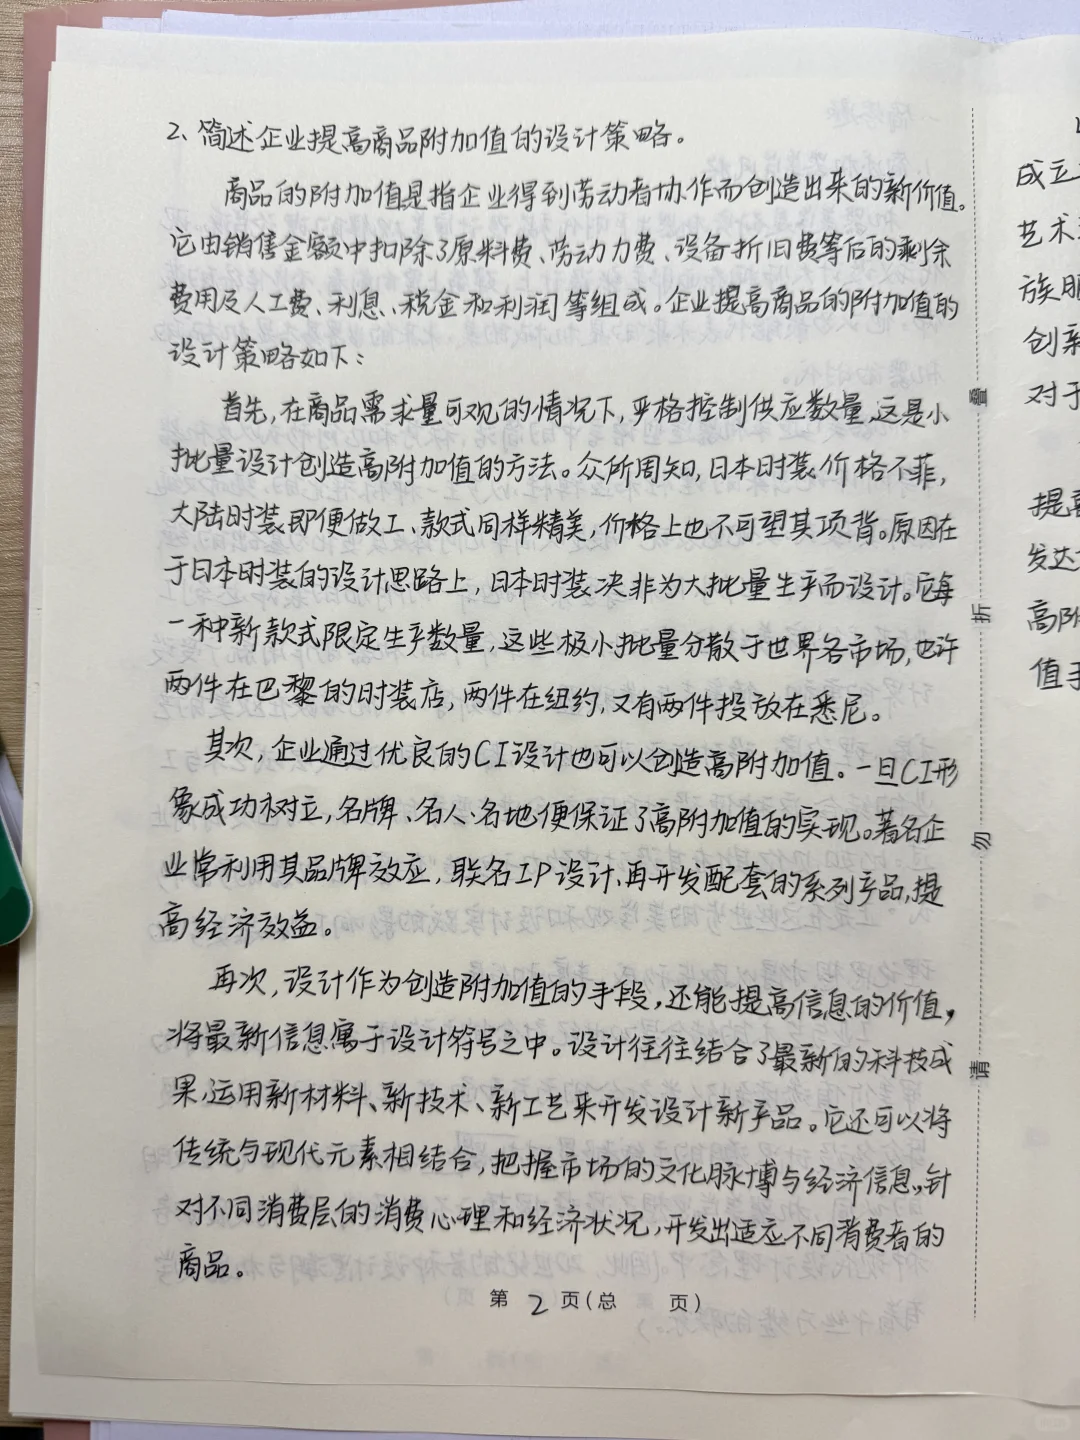 2、简述企业提高商品附加值的设计策略。
商品的附加值是指企业得到劳动者协作而创造出来的新价值。
它由销售金额中扣除了原料费、劳动力费、设备折旧费等后的剩余
费用及人工费、利息、税金和利润等组成。企业提高商品的附加值的
设计策略如下：
首先，在商品需求量可观的情况下，严格控制供应数量，这是小
批量设计创造高附加值的方法。众所周知，日本时装价格不菲，
大陆时装即便做工、款式同样精美，价格上也不可望其项背。原因在
于日本时装的设计思路上，日本时装决非为大批量生产而设计。它每
一种新款式限定生产数量，这些极小批量分散于世界各市场，也许
两件在巴黎的时装店，两件在纽约，又有两件投放在悉尼。
其次，企业通过优良的CI设计也可以创造高附加值。一旦CI形
象成功树立，名牌、名人、名地便保证了高附加值的实现。著名企
业常利用其品牌效应，联名IP设计，再开发配套的系列产品，提
高经济效益。
再次，设计作为创造附加值的手段，还能提高信息的价值，
将最新信息寓于设计符号之中。设计往往结合了最新的科技成
果，运用新材料、新技术、新工艺来开发设计新产品。它还可以将
传统与现代元素相结合，把握市场的文化脉博与经济信息，针
对不同消费层的消费心理和经济状况，开发出适应不同消费者的
商品。
第 2 页（总 页）
叠
折
勿
请
成立
艺术
族服
创新
对于
提高
发达
高附
值手